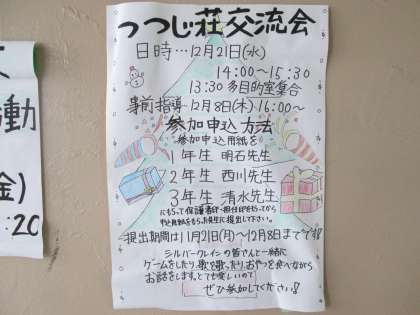 つつじ荘交流会
日時…12月21日(水)
14:00~15:30
13:30 多目的室集合
事前指導…12月8日(木)16:00~
参加申込方法
参加申込用紙を
1年生 明石先生
2年生 西川先生
3年生 清水先生
にもらって保護者印・担任印を
申込用紙をもらった先生に提出して下さい。
提出期間は11月21日(月)~12月8日までです!!
シルバークレインの皆さんと一緒に
ゲームをしたり、歌を歌ったり、おやつを食べながら
お話をします。とても楽しいので
ぜひ参加してください!!
動
金)
:20